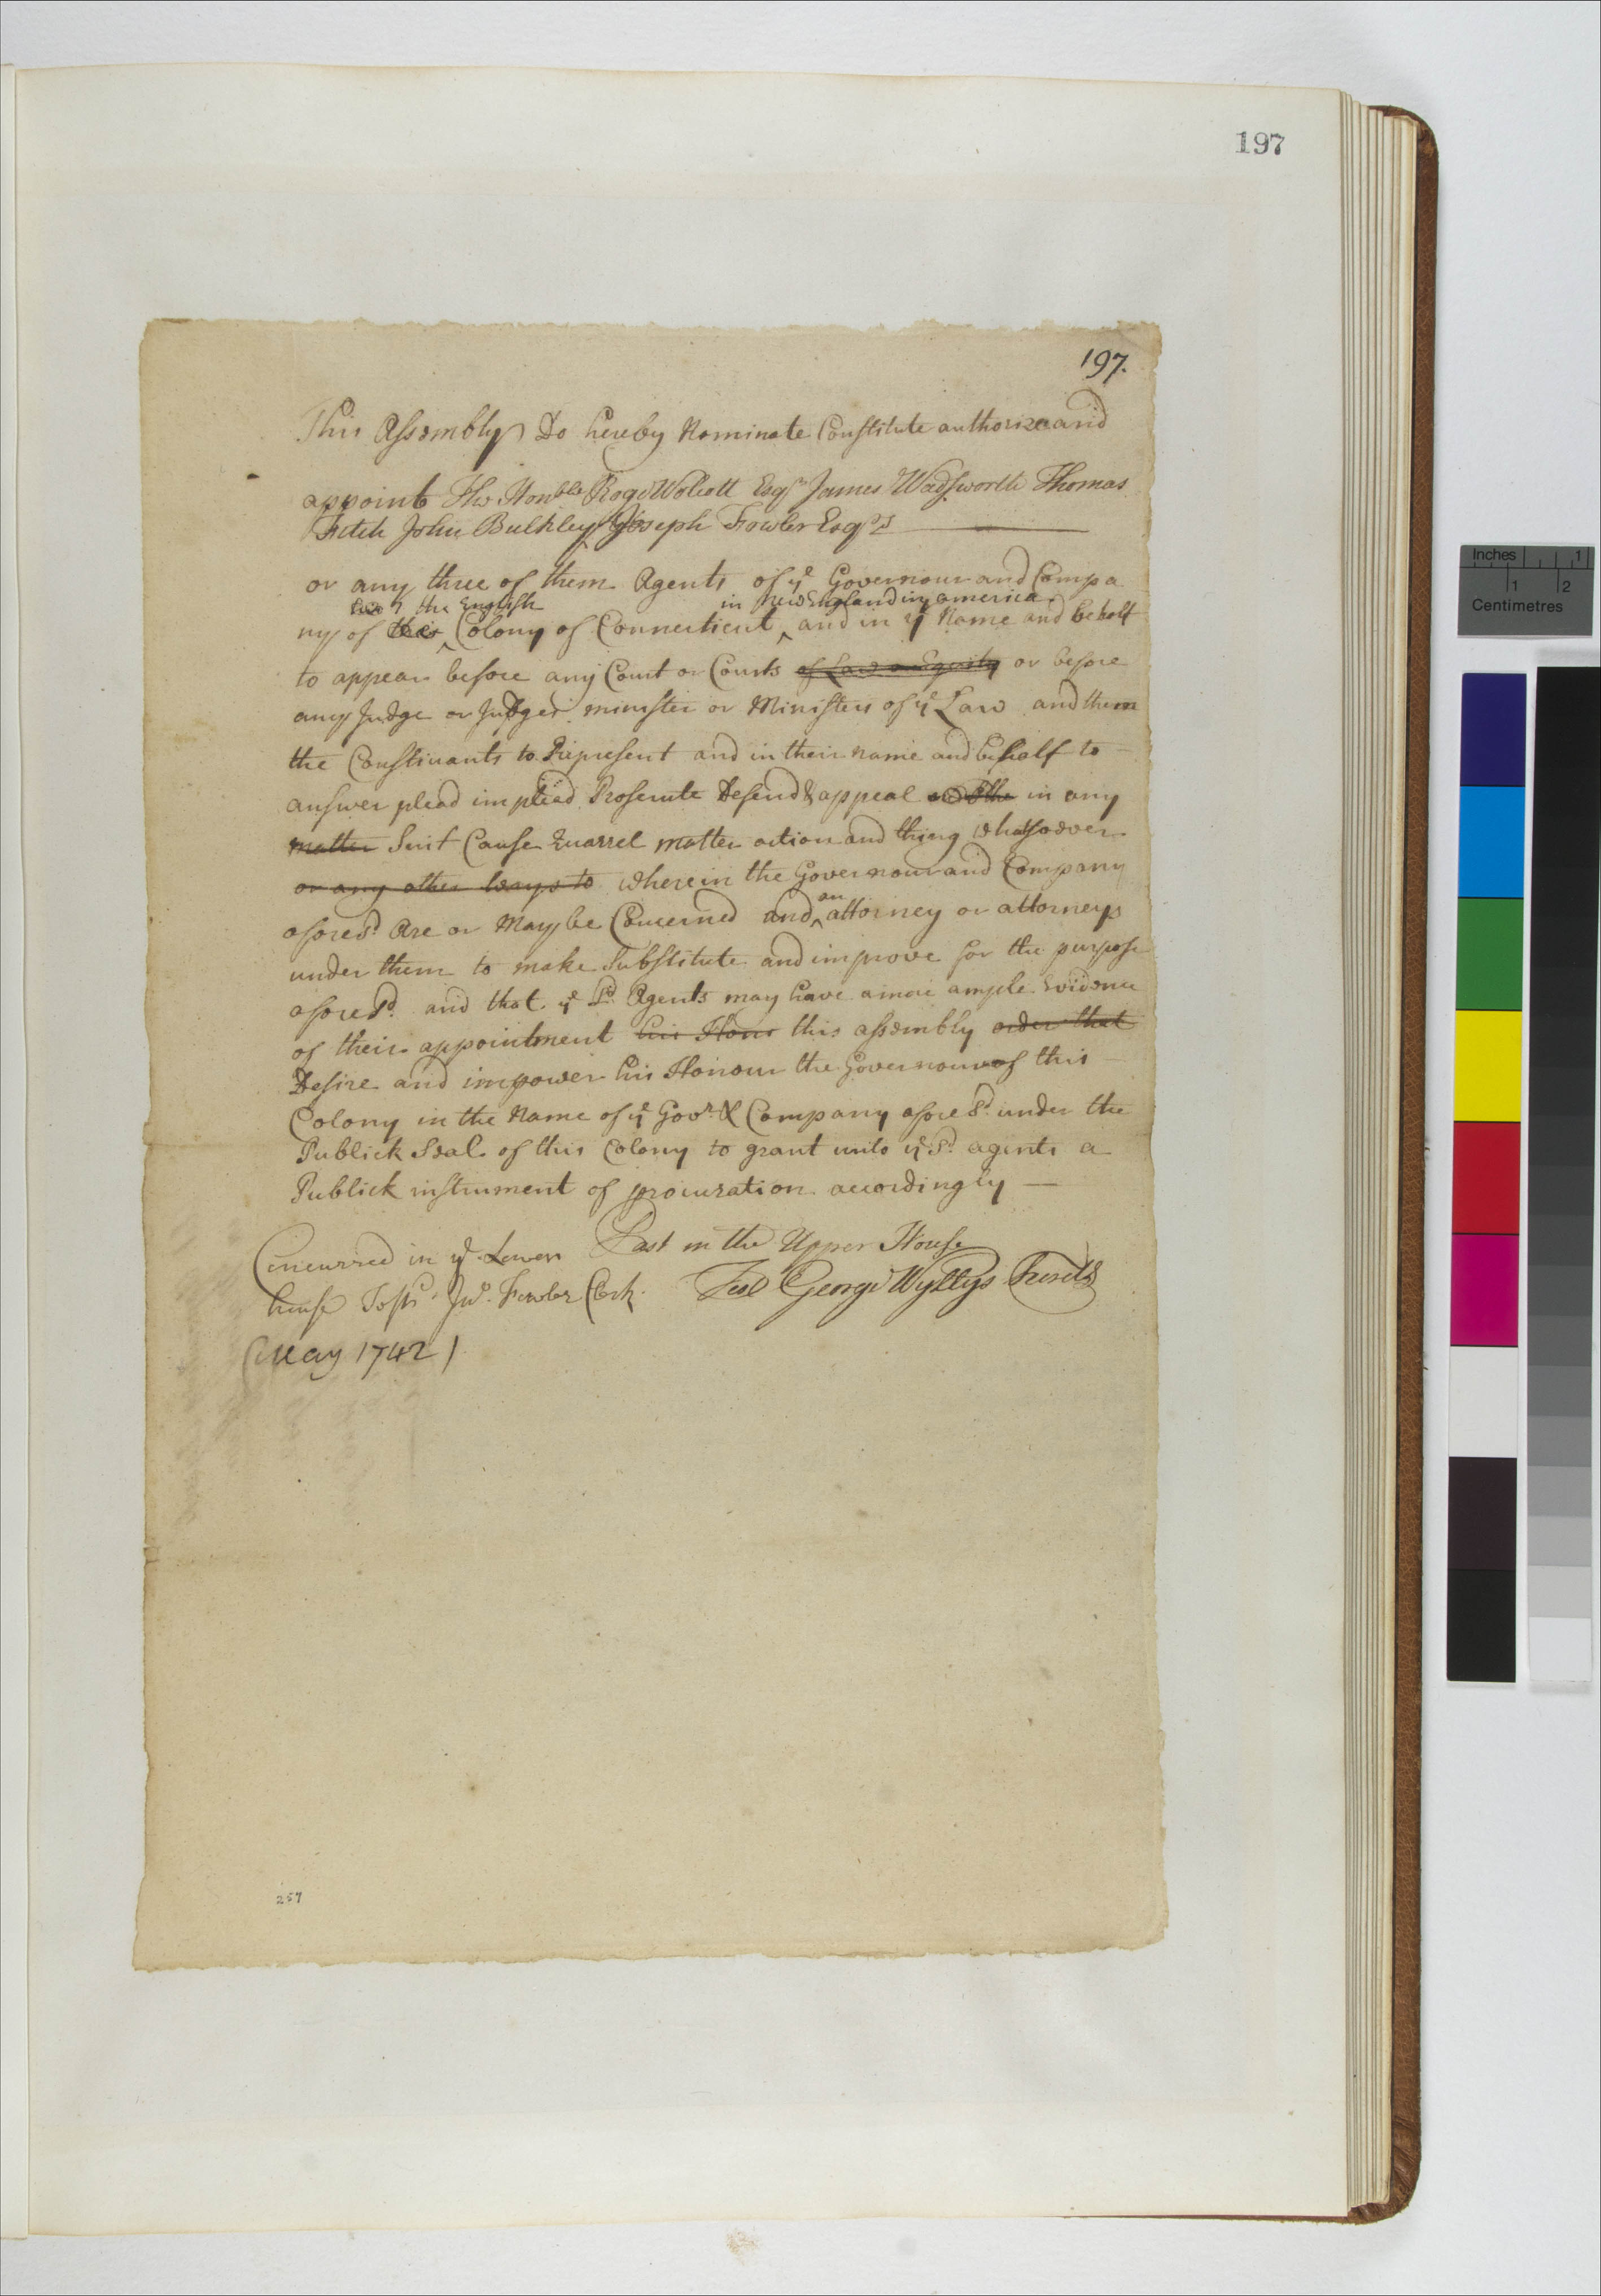 197
197.
This Assembly Do hereby Nominate Constitute authorize and
appoint The Honble Rogr Wolcott Esqr James Wadsworth Thomas
Fitch John Bulkley Joseph Fowler Esqrs
or any three of them Agents of ye Governour and Compa
the English in New England in america
ny of Colony of Connecticut ‸ and in ye Name and behalf
to appear before any Court or Courts of Law or Equity or before
any Judge or Judges minister or Ministers of ye Law and them
the Constituants to Represent and in their name and behalf to
answer plead implead Prosecute Defend & appeal in any
matter Suit Cause Quarrel matter action and thing whatsoever
or any other ways to wherein the Governour and Company
an
aforesd. Are or May be Concerned and ‸ attorney or attorneys
under them to make Substitute and improve for the purpose
aforesd. and that ye sd. Agents may have a more ample Evidence
of their appointment his Honr this assembly order that
Desire and impower his Honour the Governour of this
Colony in the Name of ye Govr. & Company aforesd. under the
Publick Seal of this Colony to grant unto ye sd. agents a
Publick instrument of procuration accordingly —
Past in the Upper House
Test George Wyllys Secret
Concurred in ye Lower
house Test Jno. Fowler Clerk.
(May 1742)
257
Inches 1
1 2
Centimetres